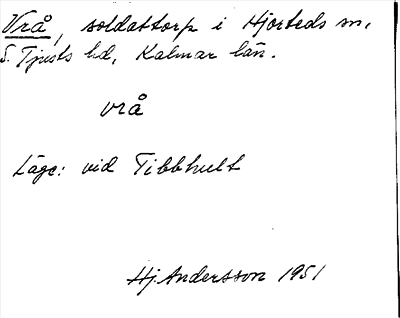 Vrå, soldattorp i Hjorteds sn,
S. Tjusts hd, Kalmar län.
vrå
Läge: vid Tibbhult
Hj. Andersson 1951